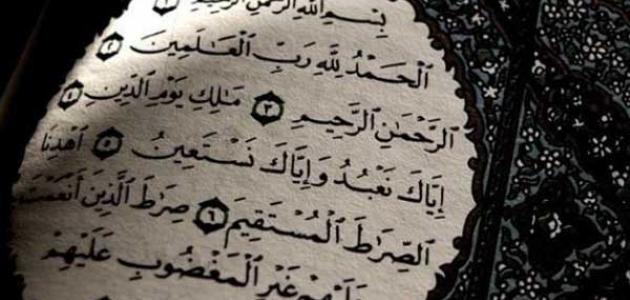 بِسْمِ ٱللَّهِ ٱلرَّحْمَٰنِ ٱلرَّحِيمِ ١
ٱلْحَمْدُ لِلَّهِ رَبِّ ٱلْعَٰلَمِينَ ٢
ٱلرَّحْمَٰنِ ٱلرَّحِيمِ ٣ مَٰلِكِ يَوْمِ ٱلدِّينِ ٤
إِيَّاكَ نَعْبُدُ وَإِيَّاكَ نَسْتَعِينُ ٥ ٱهْدِنَا
ٱلصِّرَٰطَ ٱلْمُسْتَقِيمَ ٦ صِرَٰطَ ٱلَّذِينَ أَنْعَمْتَ
عَلَيْهِمْ غَيْرِ ٱلْمَغْضُوبِ عَلَيْهِمْ